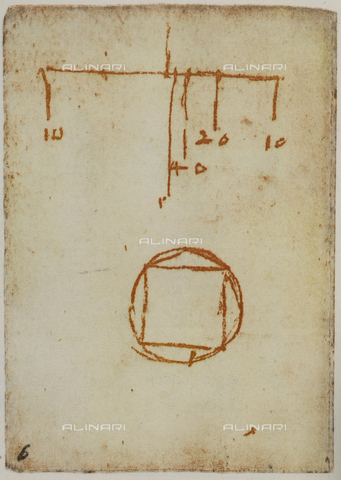 ALINARI ALINARI
10 20 10
40
ALINARI
ALINARI ALINARI
6